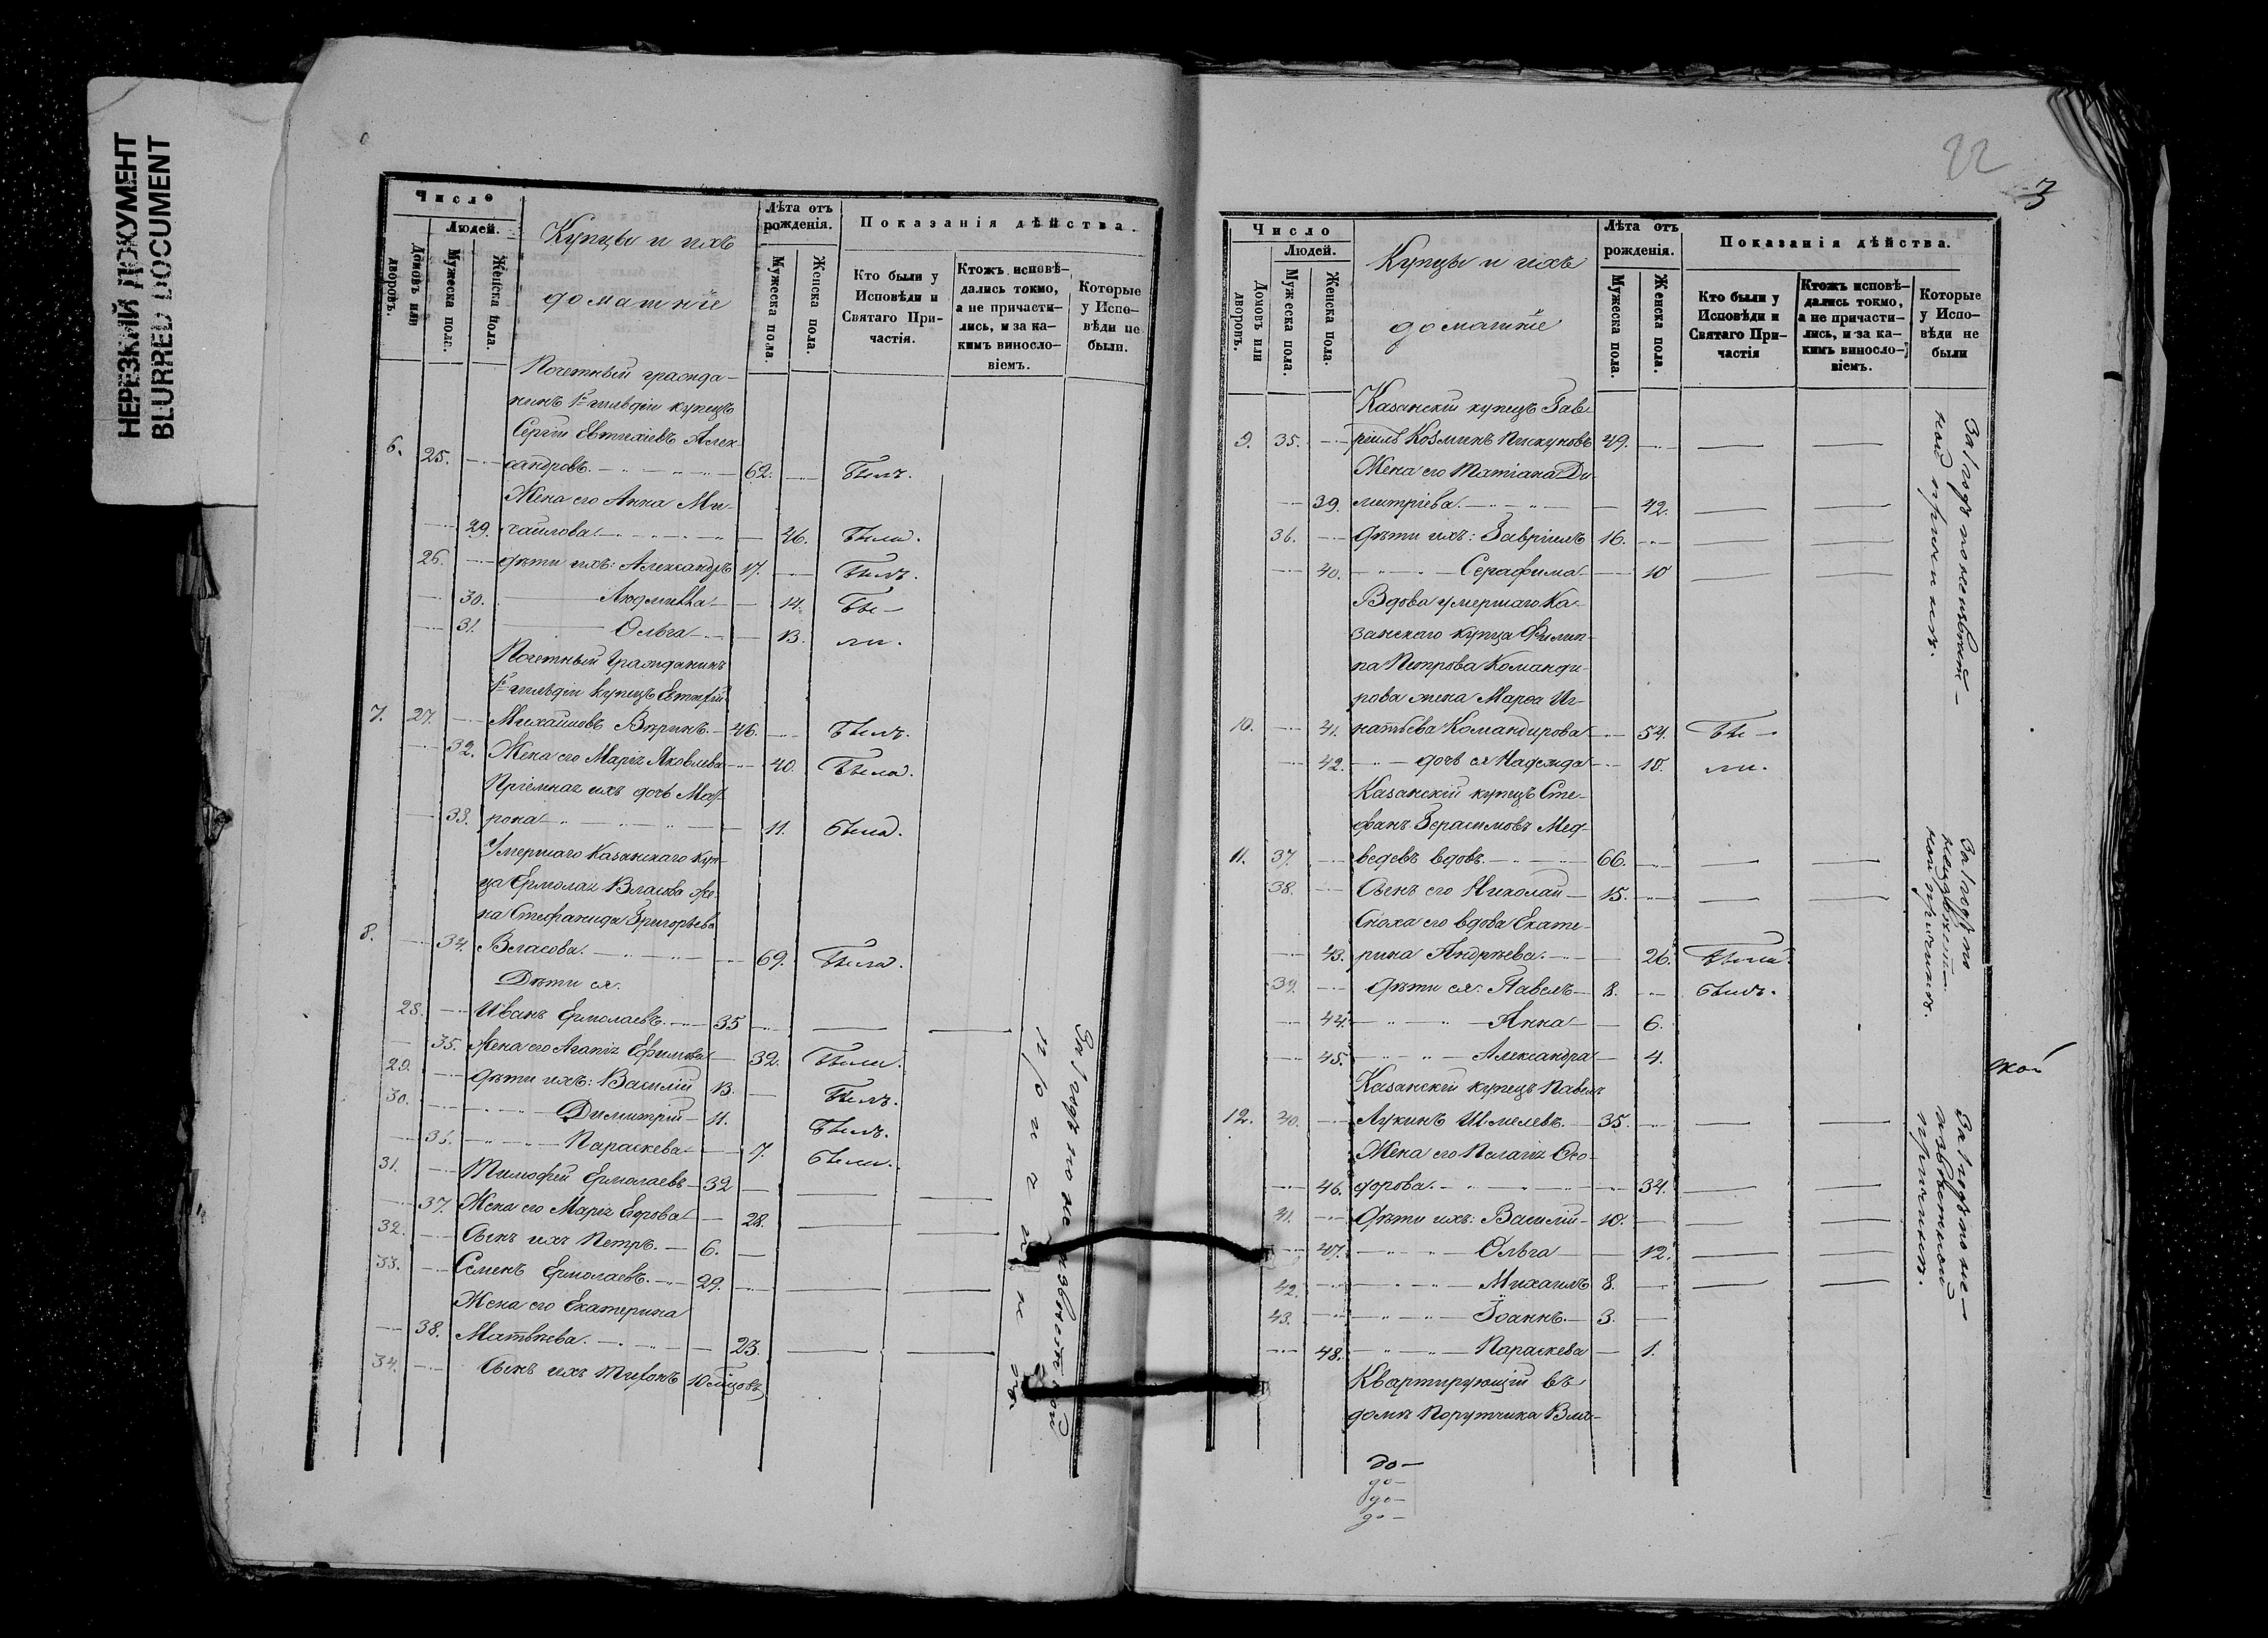 НЕРЕЗКИЙ ДОКУМЕНТ
BLURRED DOCUMENT
Число
Людей.
Домовъ или дворовъ.
Мужеска пола.
Женска пола.
Купцы и ихъ
домашніе
Лѣта отъ рожденія.
Мужеска пола.
Женска пола.
Показанія дѣйства.
Кто были у Исповѣди и Святаго Причастія.
Ктожъ исповѣдались токмо, а не причастились, и за какимъ винословіемъ.
Которые у Исповѣди не были.
Почетный гражда-
нинъ 1й гильдіи купецъ
Сергій Евтихіевъ Алек-
6. 25. сандровъ. 62. Былъ.
Жена его Анна Ми-
29. хаилова 46. Была.
26. дѣти ихъ: Александръ 17. Былъ.
30. Людмила 14. Бы-
31. Ольга 13. ли.
Почетный Гражданинъ
1й гильдіи купецъ Евтифій
7. 27. Михайловъ 46. Былъ.
32. Жена его Марія Яковлева 40. Была.
Пріемная ихъ дочь Мат-
33. рона 11. была.
Умершаго Казанскаго Куп-
ца Ермолая Власова же-
на Стефанида Григорьева
8. 34. Власова. 69. Была.
Дѣти ея.
28. Иванъ Ермолаевъ. 35
35. Жена его Агапія Ефимова 32. Была.
29. дѣти ихъ: Василій 13. Былъ.
30. Димитрій 11. Былъ.
36. Параскева 7. была.
31. Тимофей Ермолаевъ 32
37. Жена его Марія Егорова 28.
32. Сынъ ихъ Петръ. 6.
33. Семенъ Ермолаевъ. 29.
Жена его Екатерина
38. Матвѣева. 23.
34. Сынъ ихъ Тихонъ 10 мѣсцовъ
За 1 годъ по неизвѣстной
причинѣ
22
3
Число
Людей.
Домовъ или дворовъ.
Мужеска пола.
Женска пола.
Купцы и ихъ
домашніе
Лѣта отъ рожденія.
Мужеска пола.
Женска пола.
Показанія дѣйства.
Кто были у Исповѣди и Святаго Причастія
Ктожъ исповѣдались токмо, а не причастились, и за какимъ винословіемъ.
Которые у Исповѣди не были
Казанскій купецъ Гав-
9. 35. ріилъ Козминъ Пискуновъ 49.
Жена его Татіана Ди-
39. митріева. 42.
36. дѣти ихъ: Гавріилъ 16.
40. Серафима 10
За 1 годъ по неизвѣст-
ной причинѣ.
Вдова умершаго Ка-
занскаго купца Филип-
па Петрова Команди-
рова жена Марѳа Иг-
10. 41. натьева Командирова 54. Бы-
42. дочь ея Надежда 18. ли.
Казанскій купецъ Сте-
фанъ Герасимовъ Мед-
11. 37. ведевъ вдовъ. 66.
38. Сынъ его Николай 15.
За 1 годъ по
неизвѣстной
причинѣ.
Сноха его вдова Екате-
43. рина Андреева. 26. Была.
39. дѣти ея: Павелъ 8. былъ.
44. Анна 6.
45. Александра 4.
Казанскій купецъ Павелъ
12. 40. Лукинъ Шмелевъ. 35.
Жена его Пелагія Ѳео-
46. дорова. 34.
41. Дѣти ихъ: Василій 10.
47. Ольга 12.
42. Михаилъ 8.
43. Іоаннъ. 3.
48. Параскева 1.
За 1 годъ по не-
извѣстной
причинѣ.
Квартирующій въ
домѣ Порутчика
до-
до-
до-
до-